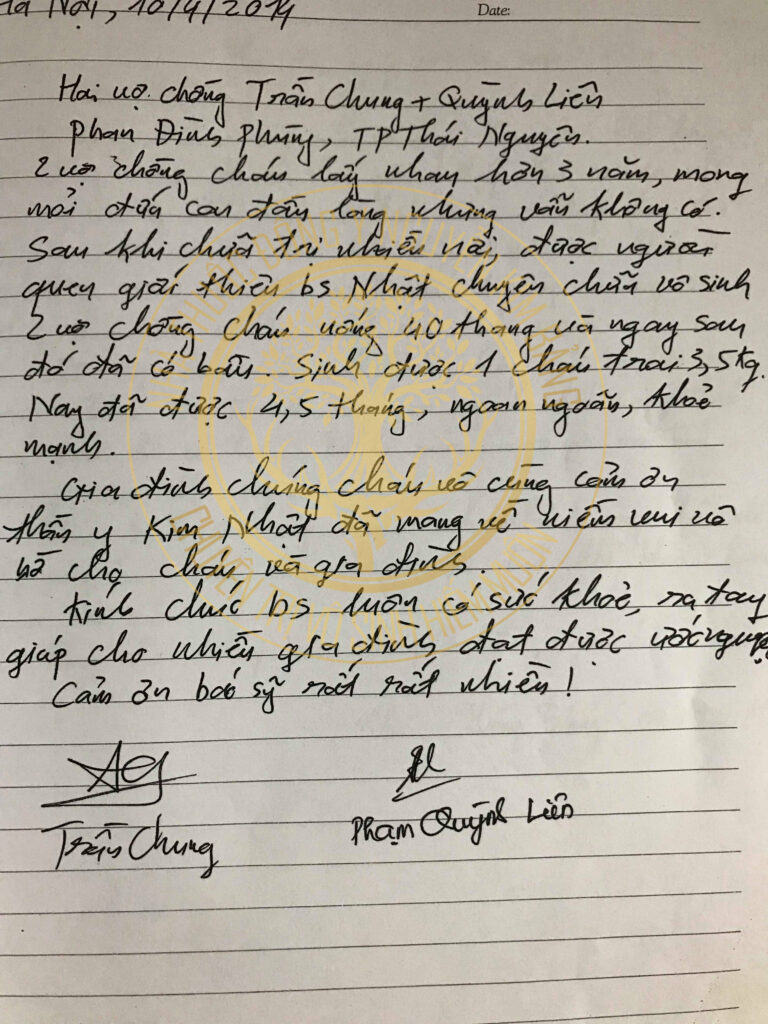 Hà Nội, 10/4/2014
Date:
Hai vợ chồng Trần Chung + Quỳnh Liên
Phan Đình Phùng, TP Thái Nguyên.
2 vợ chồng cháu lấy nhau hơn 3 năm, mong
mỏi đứa con đầu lòng nhưng vẫn không có.
Sau khi chữa trị nhiều nơi, được người
quen giới thiệu bs Nhật chuyên chữa vô sinh
2 vợ chồng cháu uống 40 thang và ngay sau
đó đã có bầu. Sinh được 1 cháu trai 3,5kg.
Nay đã được 4,5 tháng, ngoan ngoãn, khoẻ
mạnh.
Gia đình chúng cháu vô cùng cảm ơn
thần y Kim Nhật đã mang về niềm vui vô
bờ cho cháu và gia đình.
Kính chúc bs luôn có sức khoẻ, ra tay
giúp cho nhiều gia đình đạt được ước nguyện
Cảm ơn bác sỹ rất rất nhiều!
Trần Chung
Phạm Quỳnh Liên